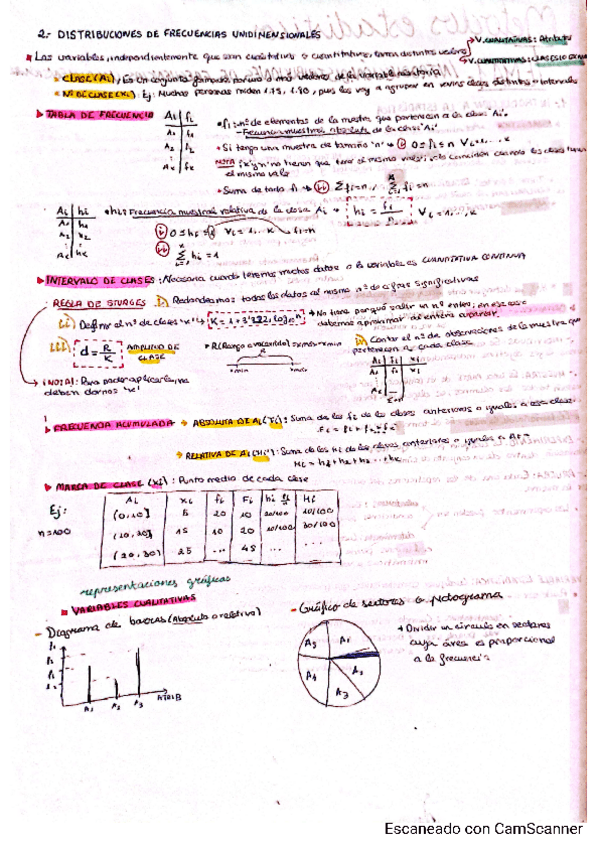 2.- DISTRIBUCIONES DE FRECUENCIAS UNIDIMENSIONALES
V. CUALITATIVAS: Atributo
Las variables, independientemente que sean cualitativas o cuantitativas, toman distintos valores
V. CUANTITATIVAS: CLASES
CLASE (Ai), Es un conjunto formado por uno o varios valores de la variable
Nº DE CLASE (K). Ej: Muchas personas miden 1.75, 1.80, pues las voy a agrupar en varias clases distintas = intervalos
TABLA DE FRECUENCIA
Ai fi
A1 f1
A2 f2
fi = nº de elementos de la muestra que pertenecen a la clase Ai.
Frecuencia muestral absoluta de la clase Ai.
Si tengo una muestra de tamaño 'n' i) 0≤fi≤n ∀i=1,...,K
NOTA: 'K' y 'n' no tienen que tener el mismo valor, coinciden cuando las clases tienen
el mismo valor
Suma de todo fi → ii) Σfi=n
Ai hi
A1 h1
hi: Frecuencia muestral relativa de la clase Ai → hi = fi/n ∀i=1,...,K
i) 0≤hi≤1 ∀i=1,...,K
ii) Σ hi = 1
INTERVALO DE CLASES: Necesaria cuando tenemos muchos datos o la variable es CUANTITATIVA CONTINUA
REGLA DE STURGES i) Redondeamos todos los datos al mismo nº de cifras significativas
ii) Definir el nº de clases 'K' → K = 1+3'322·log n
No tiene porqué salir un nº entero, en ese caso
debemos aproximar al entero superior.
iii) d = R/K AMPLITUD DE CLASE
R (Rango o recorrido) = xmáx - xmín
xmín R xmáx
iv) Contar el nº de observaciones de la muestra que
pertenecen a cada clase
Ai fi xi
(NOTA): Para poder aplicarla, no
deben darnos 'K'
FRECUENCIA ACUMULADA → ABSOLUTA DE Ai (Fi): Suma de las fi de las clases anteriores o iguales a esa clase.
RELATIVA DE Ai (Hi): Suma de las hi de las clases anteriores o iguales a Ai.
Hi = h1+h2+h3...+hi
MARCA DE CLASE (xi): Punto medio de cada clase
Ej:
n=100
Ai xi fi Fi hi fi/n Hi
(0,10] 5 20 10 20/100 10/100
(10,20] 15 10 20 10/100 30/100
(20,30) 25 ... 45 ... ...
representaciones gráficas
VARIABLES CUALITATIVAS
- Diagrama de barras (Absoluta o relativa)
A1 A2 A3 ATRIB
- Gráfico de sectores o Pictograma
A5 A1 A4 A3
Dividir un círculo en sectores
cuya área es proporcional
a la frecuencia
Escaneado con CamScanner